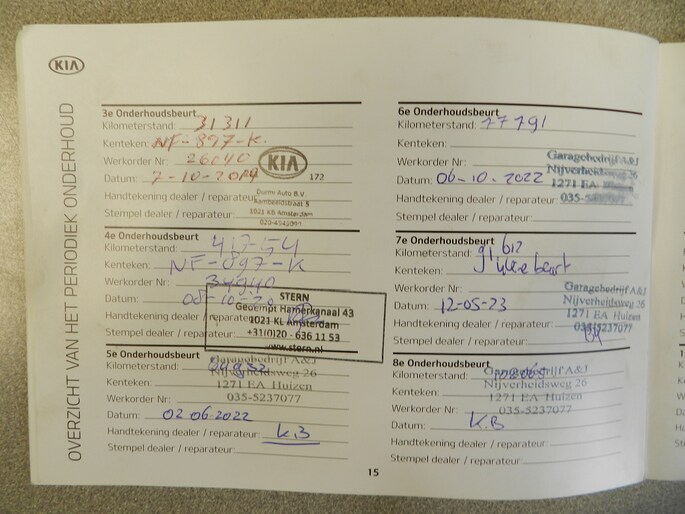 KIA
OVERZICHT VAN HET PERIODIEK ONDERHOUD
3e Onderhoudsbeurt
Kilometerstand: 31311
Kenteken: NF-897-K
Werkorder Nr: 26040
Datum: 7-10-2014
KIA
172
Durmi Auto B.V.
1021 KB Amsterdam
Handtekening dealer / reparateur:
Stempel dealer / reparateur:
4e Onderhoudsbeurt
Kilometerstand: 41754
Kenteken: NF-897-K
Werkorder Nr:
Datum:
STERN
Gedempt Hamerkanaal 43
1021 KL Amsterdam
+31(0)20 - 636 11 53
www.stern.nl
Handtekening dealer / reparateur:
Stempel dealer / reparateur:
5e Onderhoudsbeurt
Kilometerstand:
Garagebedrijf A&J
Nijverheidsweg 26
1271 EA Huizen
035-5237077
Kenteken:
Werkorder Nr:
Datum: 02 06-2022
Handtekening dealer / reparateur: K.B
Stempel dealer / reparateur:
15
6e Onderhoudsbeurt
Kilometerstand: 77791
Kenteken:
Werkorder Nr:
Datum: 06-10-2022
Garagebedrijf A&J
Nijverheidsweg 26
1271 EA
Handtekening dealer / reparateur:
Stempel dealer / reparateur:
7e Onderhoudsbeurt
Kilometerstand: 91 612
Kenteken:
Werkorder Nr:
Datum: 12-05-23
Garagebedrijf A&J
Nijverheidsweg 26
1271 EA Huizen
035-5237077
Handtekening dealer / reparateur:
Stempel dealer / reparateur:
8e Onderhoudsbeurt
Kilometerstand:
Garagebedrijf A&J
Nijverheidsweg 26
1271 EA Huizen
035-5237077
Kenteken:
Werkorder Nr:
Datum: K.B
Handtekening dealer / reparateur:
Stempel dealer / reparateur: